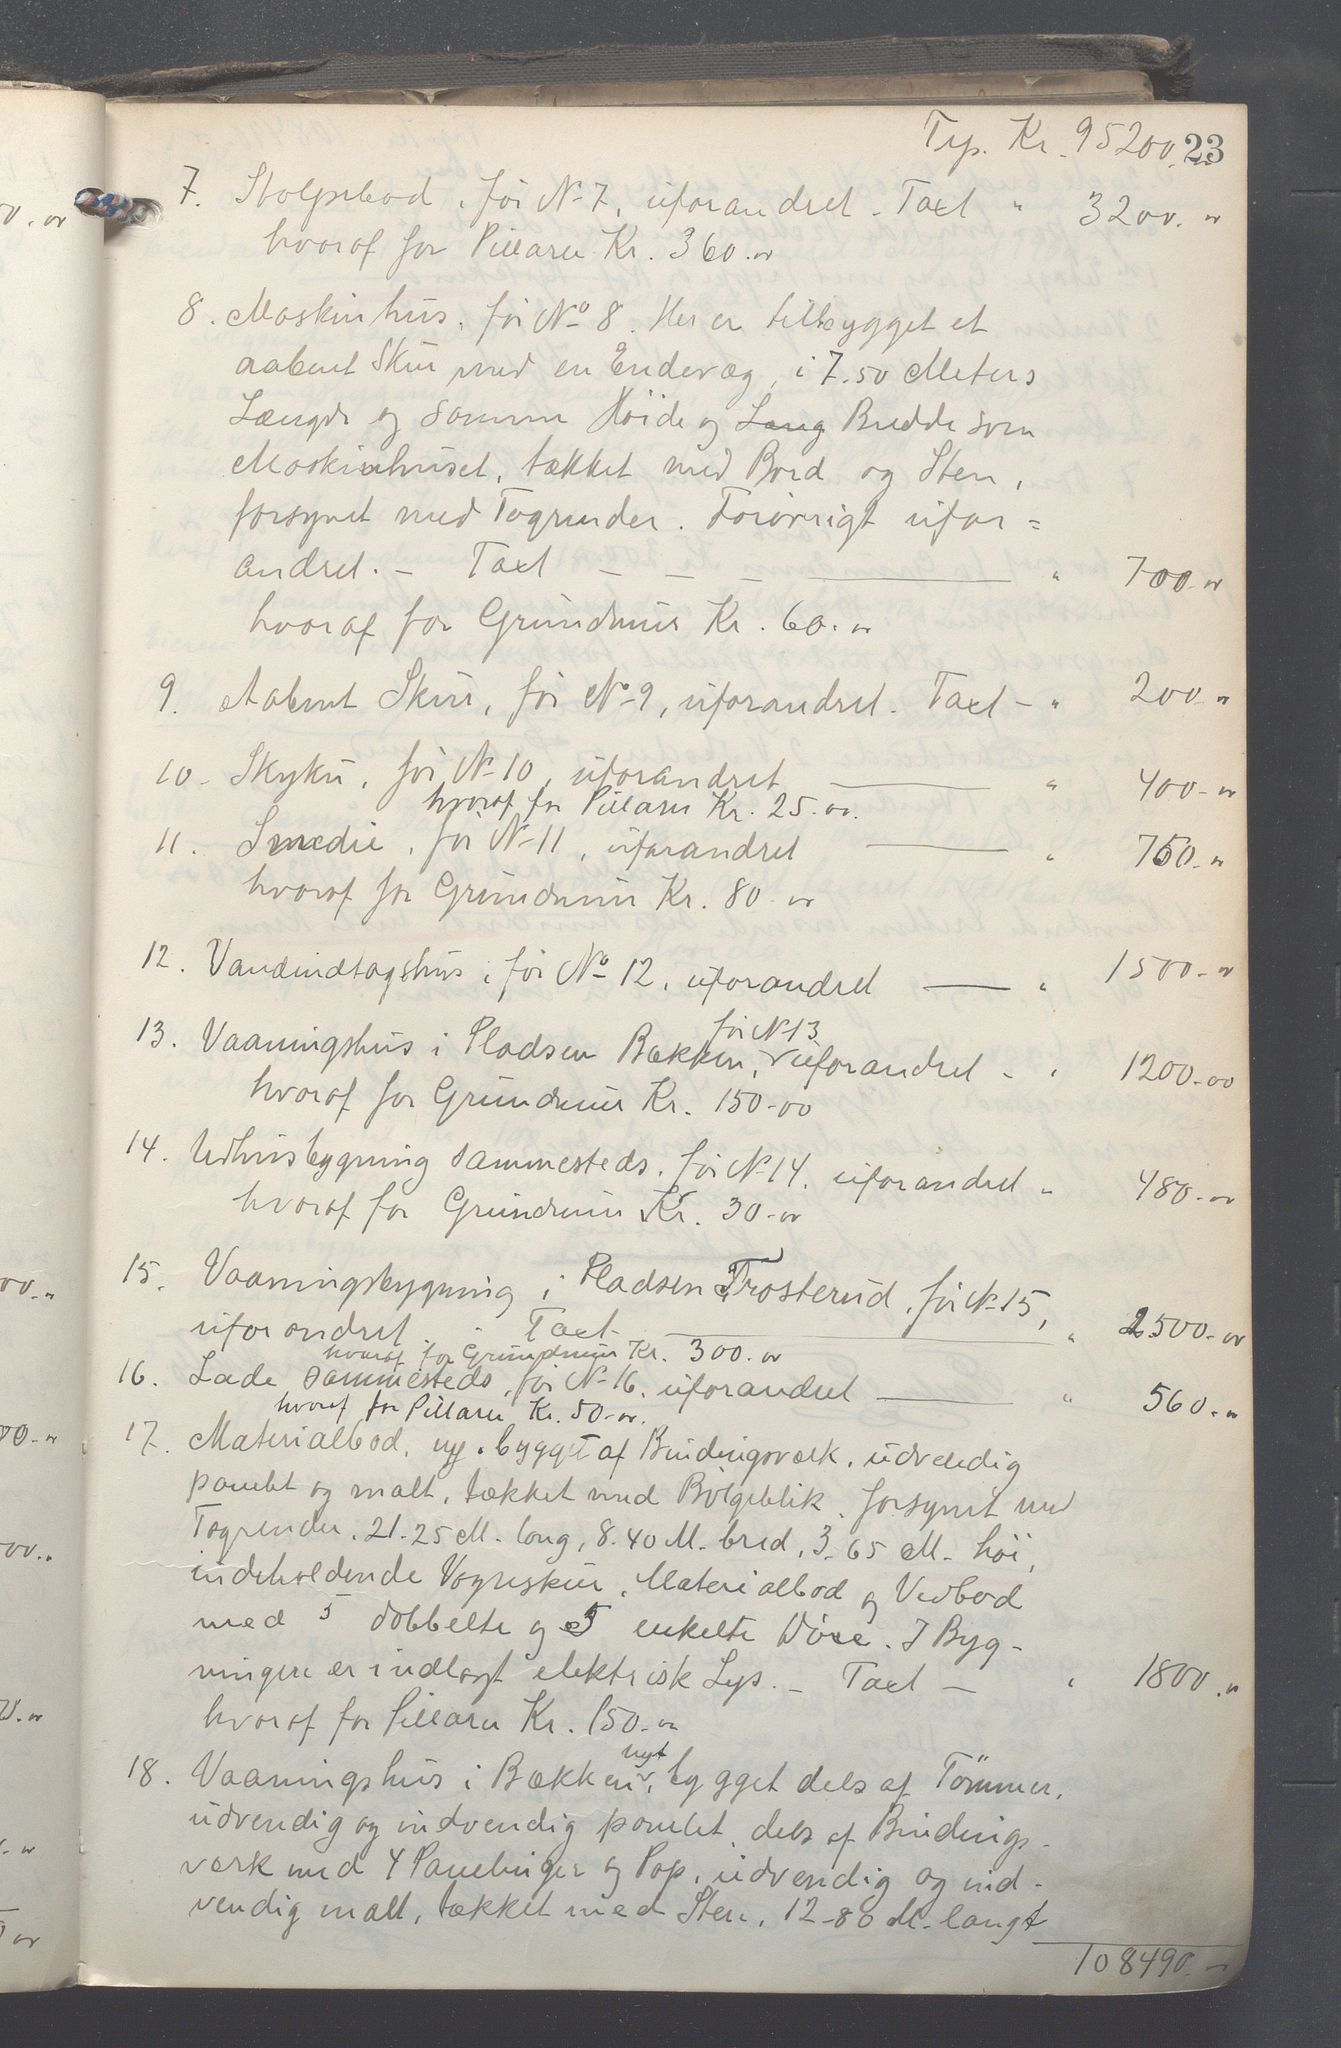 Trp. Kr. 95200.
23
7. Stolpebod, før No 7, uforandret. Taxt " 3200.00
hvoraf for Pillarer Kr. 360.00
8. Maskinhus, før No 8. Her er tilbygget et
aabent Skur med en Endevæg, i 7.50 Meters
Længde og samme Høide og Lang Bredde som
Maskinhuset, tækket med Bord og Sten,
forsynet med Tagrender. Forøvrigt ufor=
andret. - Taxt - - - " 700.00
hvoraf for Grundmur Kr. 60.00
9. Aabent Skur, før No 9, uforandret. Taxt - " 200.00
10. Skyku, før No 10, uforandret " 400.00
hvoraf for Pillarer Kr. 25.00.
11. Smedie, før No 11, uforandret " 750.00
hvoraf for Grundmur Kr. 80.00
12. Vandindtagshus, før No 12, uforandret " 1500.00
før No 13
13. Vaaningshus i Pladsen Bækken, uforandret - " 1200.00
hvoraf for Grundmur Kr. 150.00
14. Udhusbygning sammesteds, før No 14, uforandret " 480.00
hvoraf for Grundmur Kr. 30.00
15. Vaaningsbygning i Pladsen Trosterud, før No 15,
uforandret. - Taxt " 2500.00
hvoraf for Grundmur Kr. 300.00
16. Lade sammesteds, før No 16, uforandret " 560.00
hvoraf for Pillarer Kr. 50.00.
17. Materialbod, ny, bygget af Bindingsværk, udvendig
panelt og malt, tækket med Bølgeblik, forsynet med
Tagrender. 21.25 M. lang, 8.40 M. bred, 3.65 M. høi,
indeholdende Vognskur, Materialbod og Vedbod
med 5 dobbelte og 5 enkelte Døre. I Byg-
ningen er indlagt elektrisk Lys. - Taxt - " 1800.00
hvoraf for Pillarer Kr. 150.00
nyt
18. Vaaningshus i Bækken, bygget dels af Tömmer,
udvendig og indvendig panelt, dels af Bindings-
værk med 4 Panelinger og Pap, udvendig og ind-
vendig malt, tækket med Sten, 12.80 M. langt
108490.-